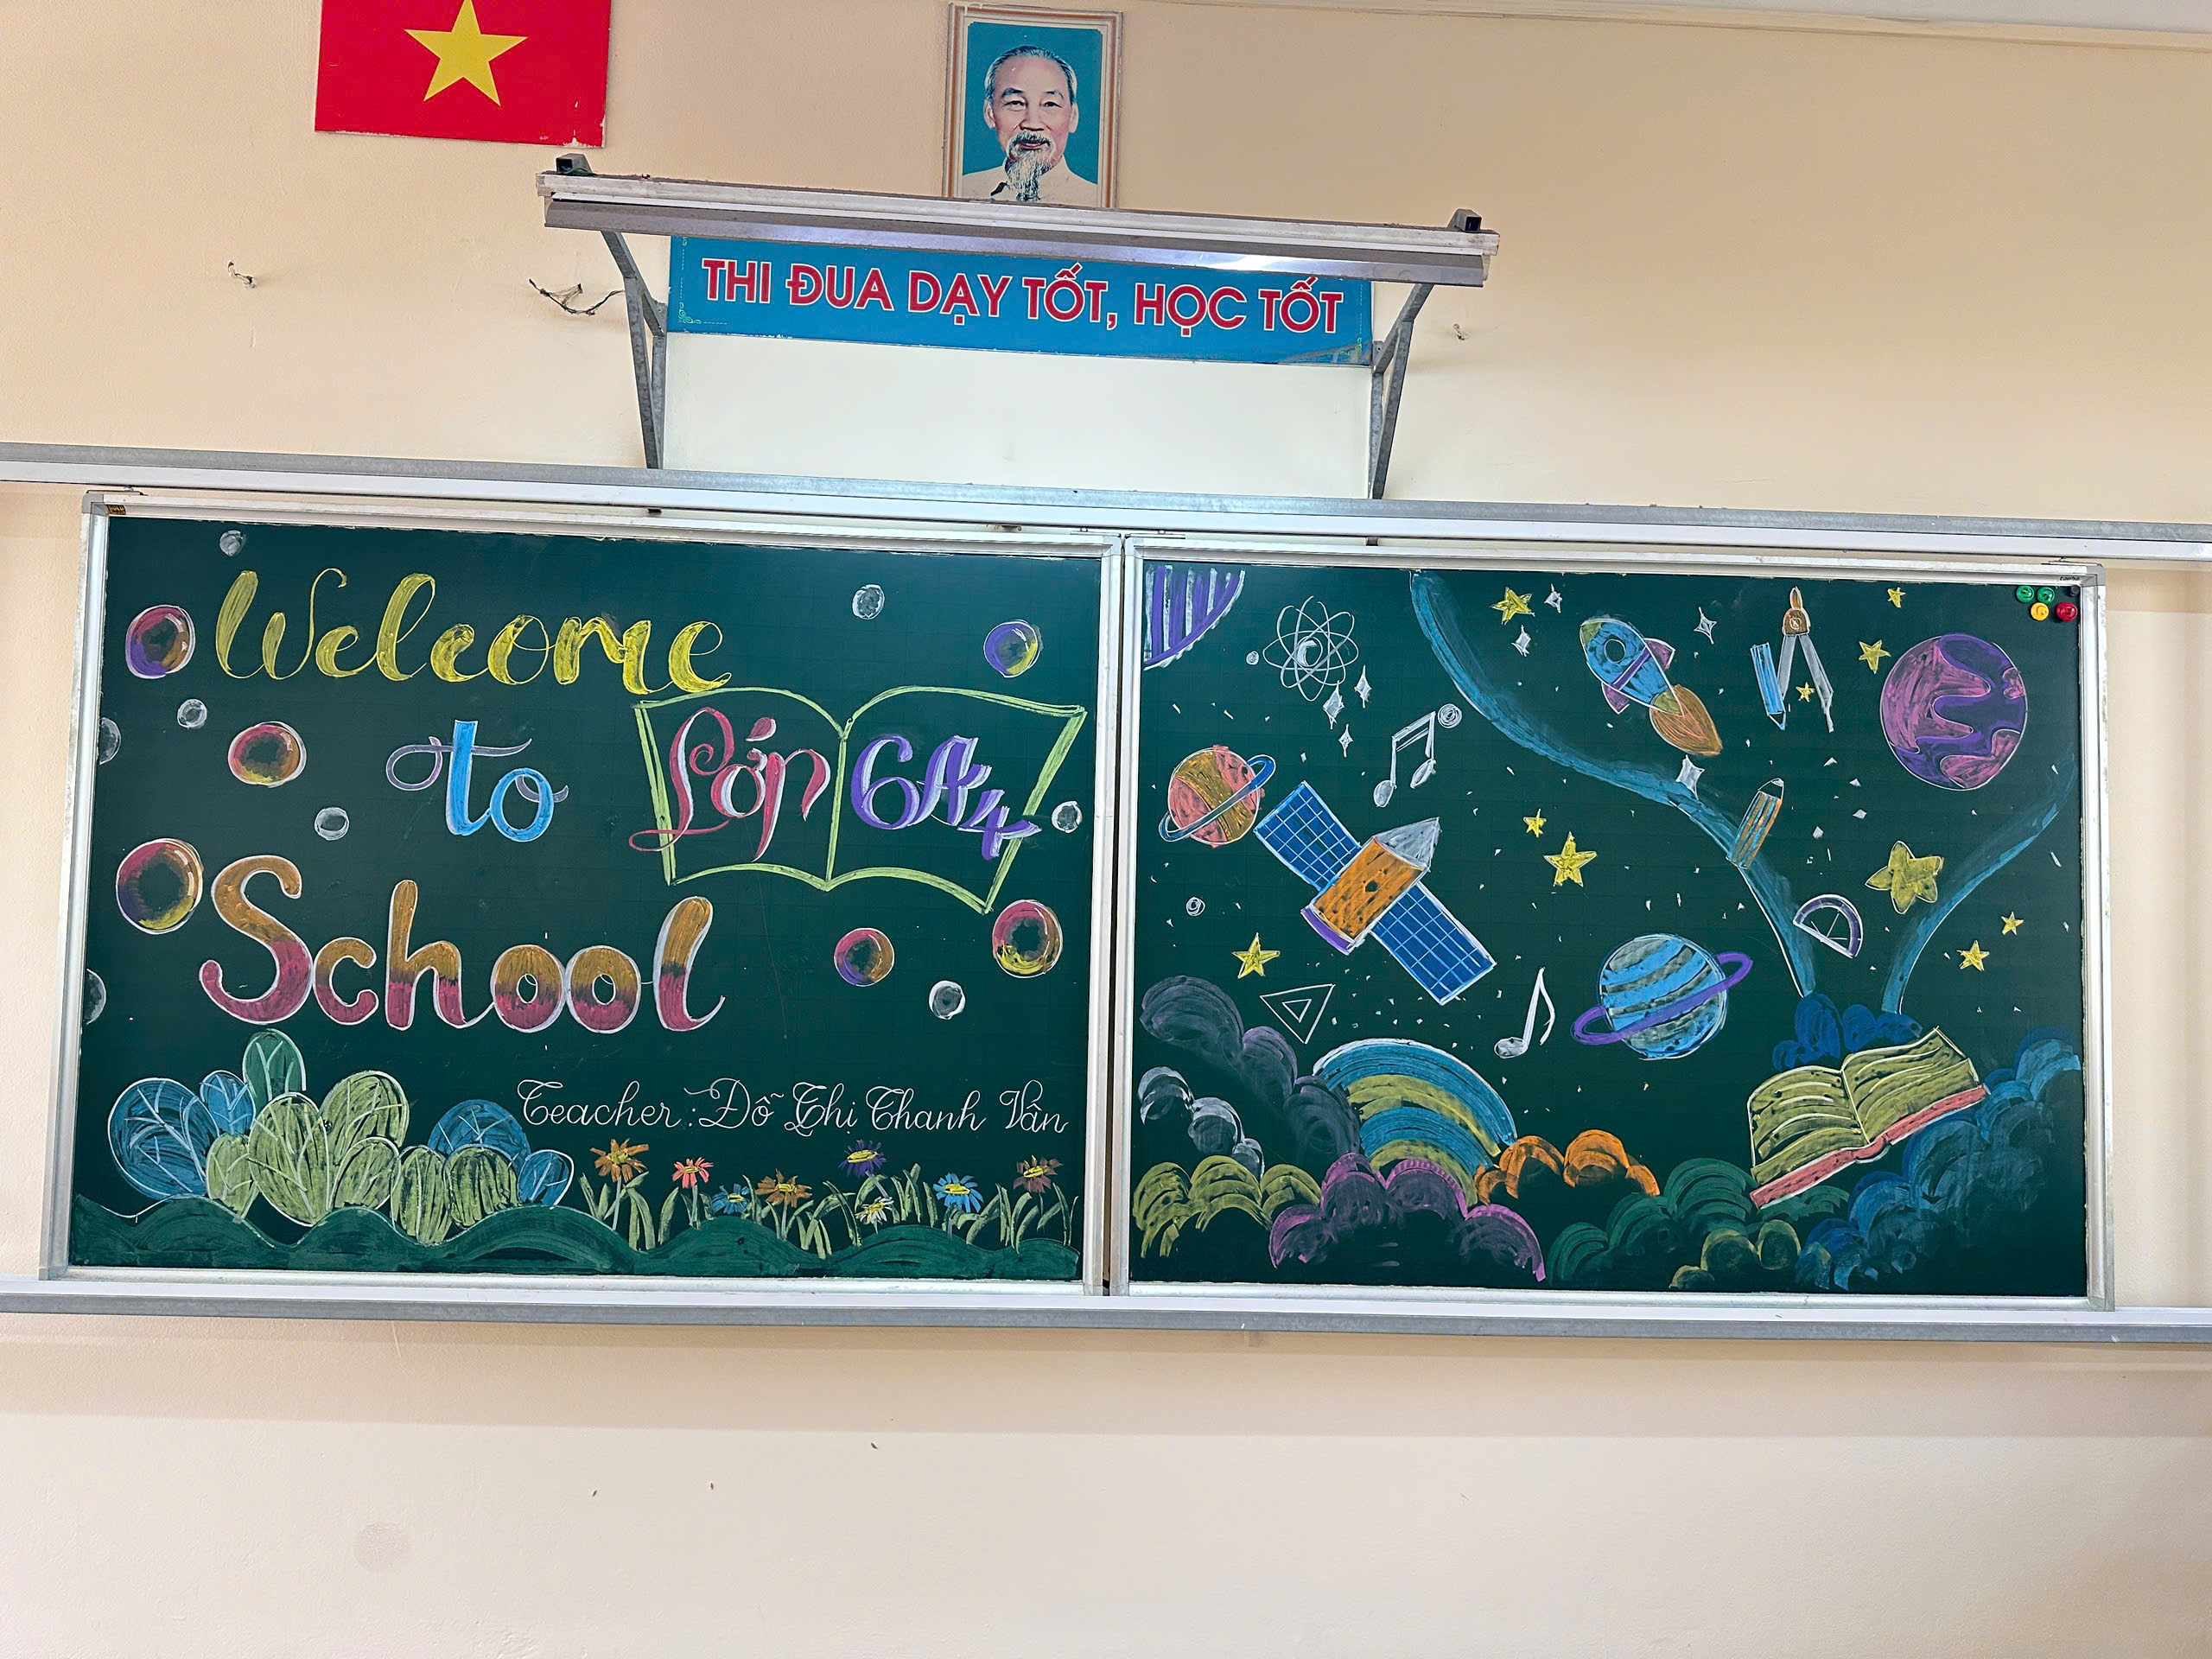 THI ĐUA DẠY TỐT, HỌC TỐT
Welcome
to
Lớp 6A4
School
Teacher: Đỗ Thi Thanh Vân